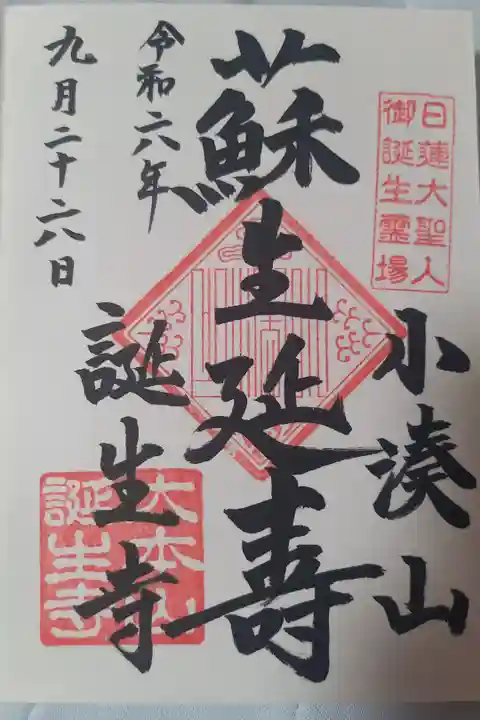 日蓮大聖人
御誕生霊場
小湊山
蘇生延壽
誕生寺
大本山
誕生寺
令和六年
九月二十六日